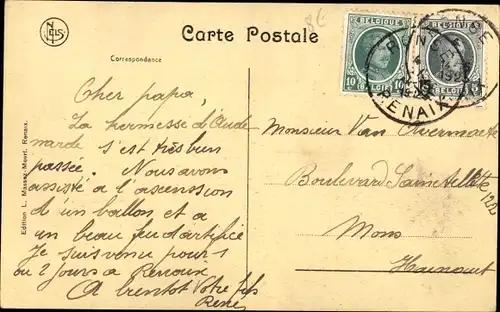 8€
NELS
Carte Postale
Correspondance
BELGIQUE
10 10
BELGIË
BELGIQUE
RENAIX
Cher papa,
La kermesse d'Aude
narde s'est très bien
passée. Nous avons
assisté à l'ascension
d'un ballon et a
un beau feu d'artifice
Je suis venu pour 1
ou 2 jours a Renaix
A bientôt Votre fils
René
Monsieur Van Overmaete
Boulevard Sainctelette 120
Mons
Hainaut
Edition L. Massez-Meert, Renaix.